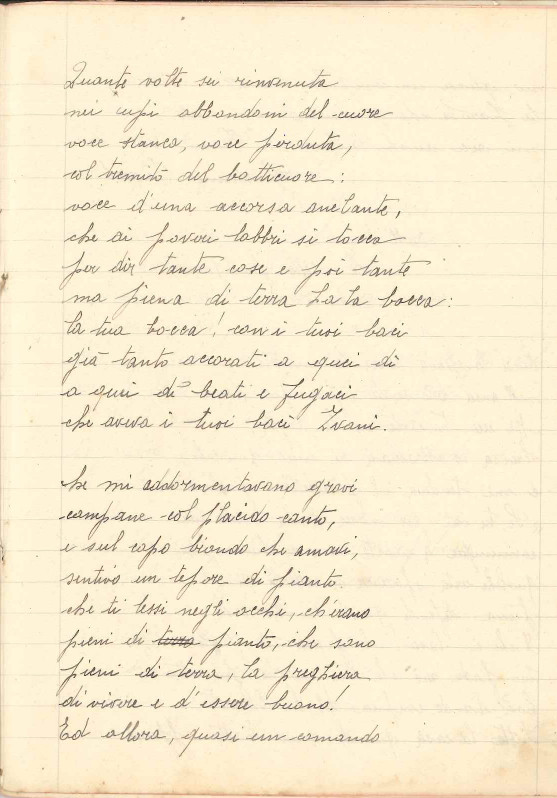 Quante volte sei rinvenuta
nei cupi abbandoni del cuore
voce stanca, voce perduta,
col tremito del batticuore:
voce d'una accorsa anelante,
che ai poveri labbri si tocca
per dir tante cose e poi tante
ma piena di terra ha la bocca:
la tua bocca! con i tuoi baci
già tanto accorati a quei dì
a quei dì beati e fugaci
che aveva i tuoi baci Zvanî.
he mi addormentavano gravi
campane col placido canto,
e sul capo biondo che amavi,
sentivo un tepore di pianto
che ti lessi negli occhi, ch'erano
pieni di terra pianto, che sono
pieni di terra, la preghiera
di vivere e d'essere buono!
Ed allora, quasi un comando